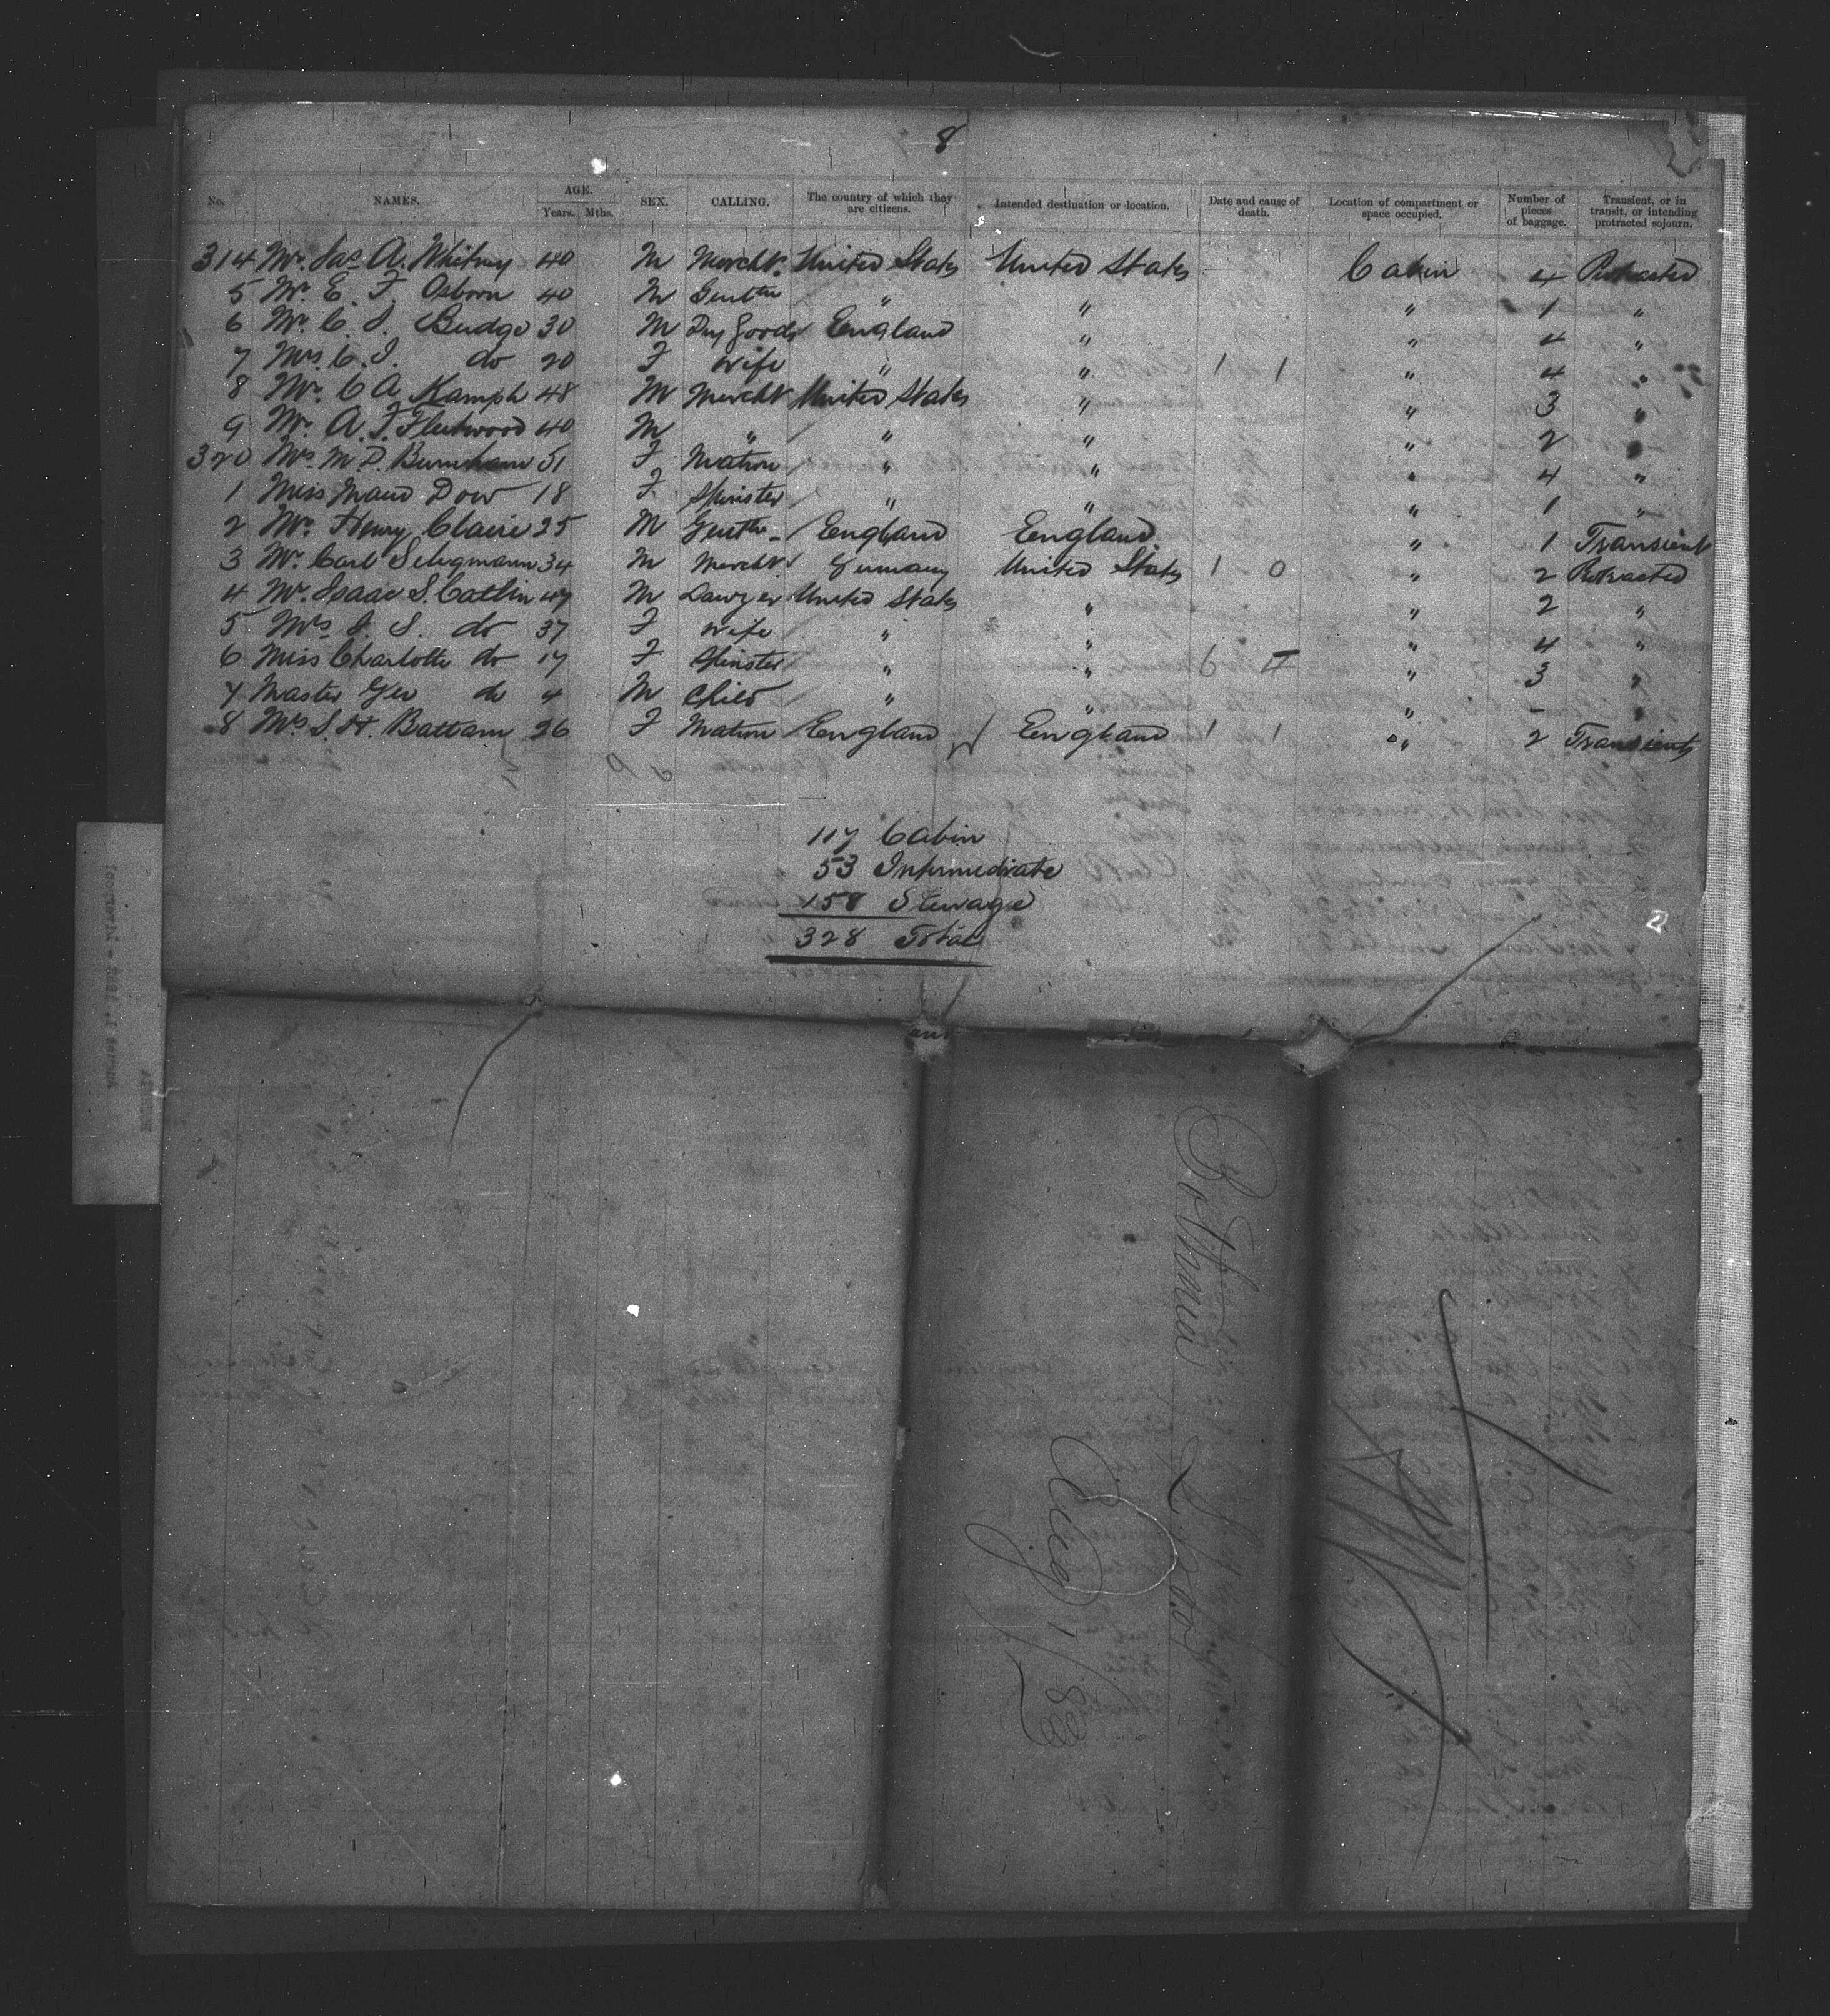 8
No. NAMES. AGE. Years. Mths. SEX. CALLING. The country of which they are citizens. Intended destination or location. Date and cause of death. Location of compartment or space occupied. Number of pieces of baggage. Transient, or in transit, or intending protracted sojourn.
314 Mr. Jas A. Whitney 40 M Mercht. United States United States Cabin 4 Protracted
5 Mr. E. F. Osborn 40 M Gentln " " " 1 "
6 Mr. C. J. Budge 30 M Dry Goods England " " 4 "
7 Mrs C. J. do 20 F Wife " " 1 1 " 4 "
8 Mr. C A. Kamph 48 M Mercht United States " " 3 "
9 Mr. A. F. Fleetwood 40 M " " " " 2 "
320 Mrs M. D. Burnham 51 F Matron " " " 4 "
1 Miss Maud Dow 18 F Spinster " " " 1 "
2 Mr. Henry Claire 25 M Gentln England England " 1 Transient
3 Mr. Carl Selegmann 34 M Mercht Germany United States 1 0 " 2 Protracted
4 Mr. Isaac S. Catlin 47 M Lawyer United States " " 2 "
5 Mrs I. S. do 37 F Wife " " " 4 "
6 Miss Charlotte do 17 F Spinster " " 6 " 3 "
7 Master Geo do 4 M Child " " " - "
8 Mrs S. H. Battam 26 F Matron England England 1 1 " 2 Transient
117 Cabin
53 Intermediate
158 Steerage
328 Total
Bothnia L'pool
Aug 1/83